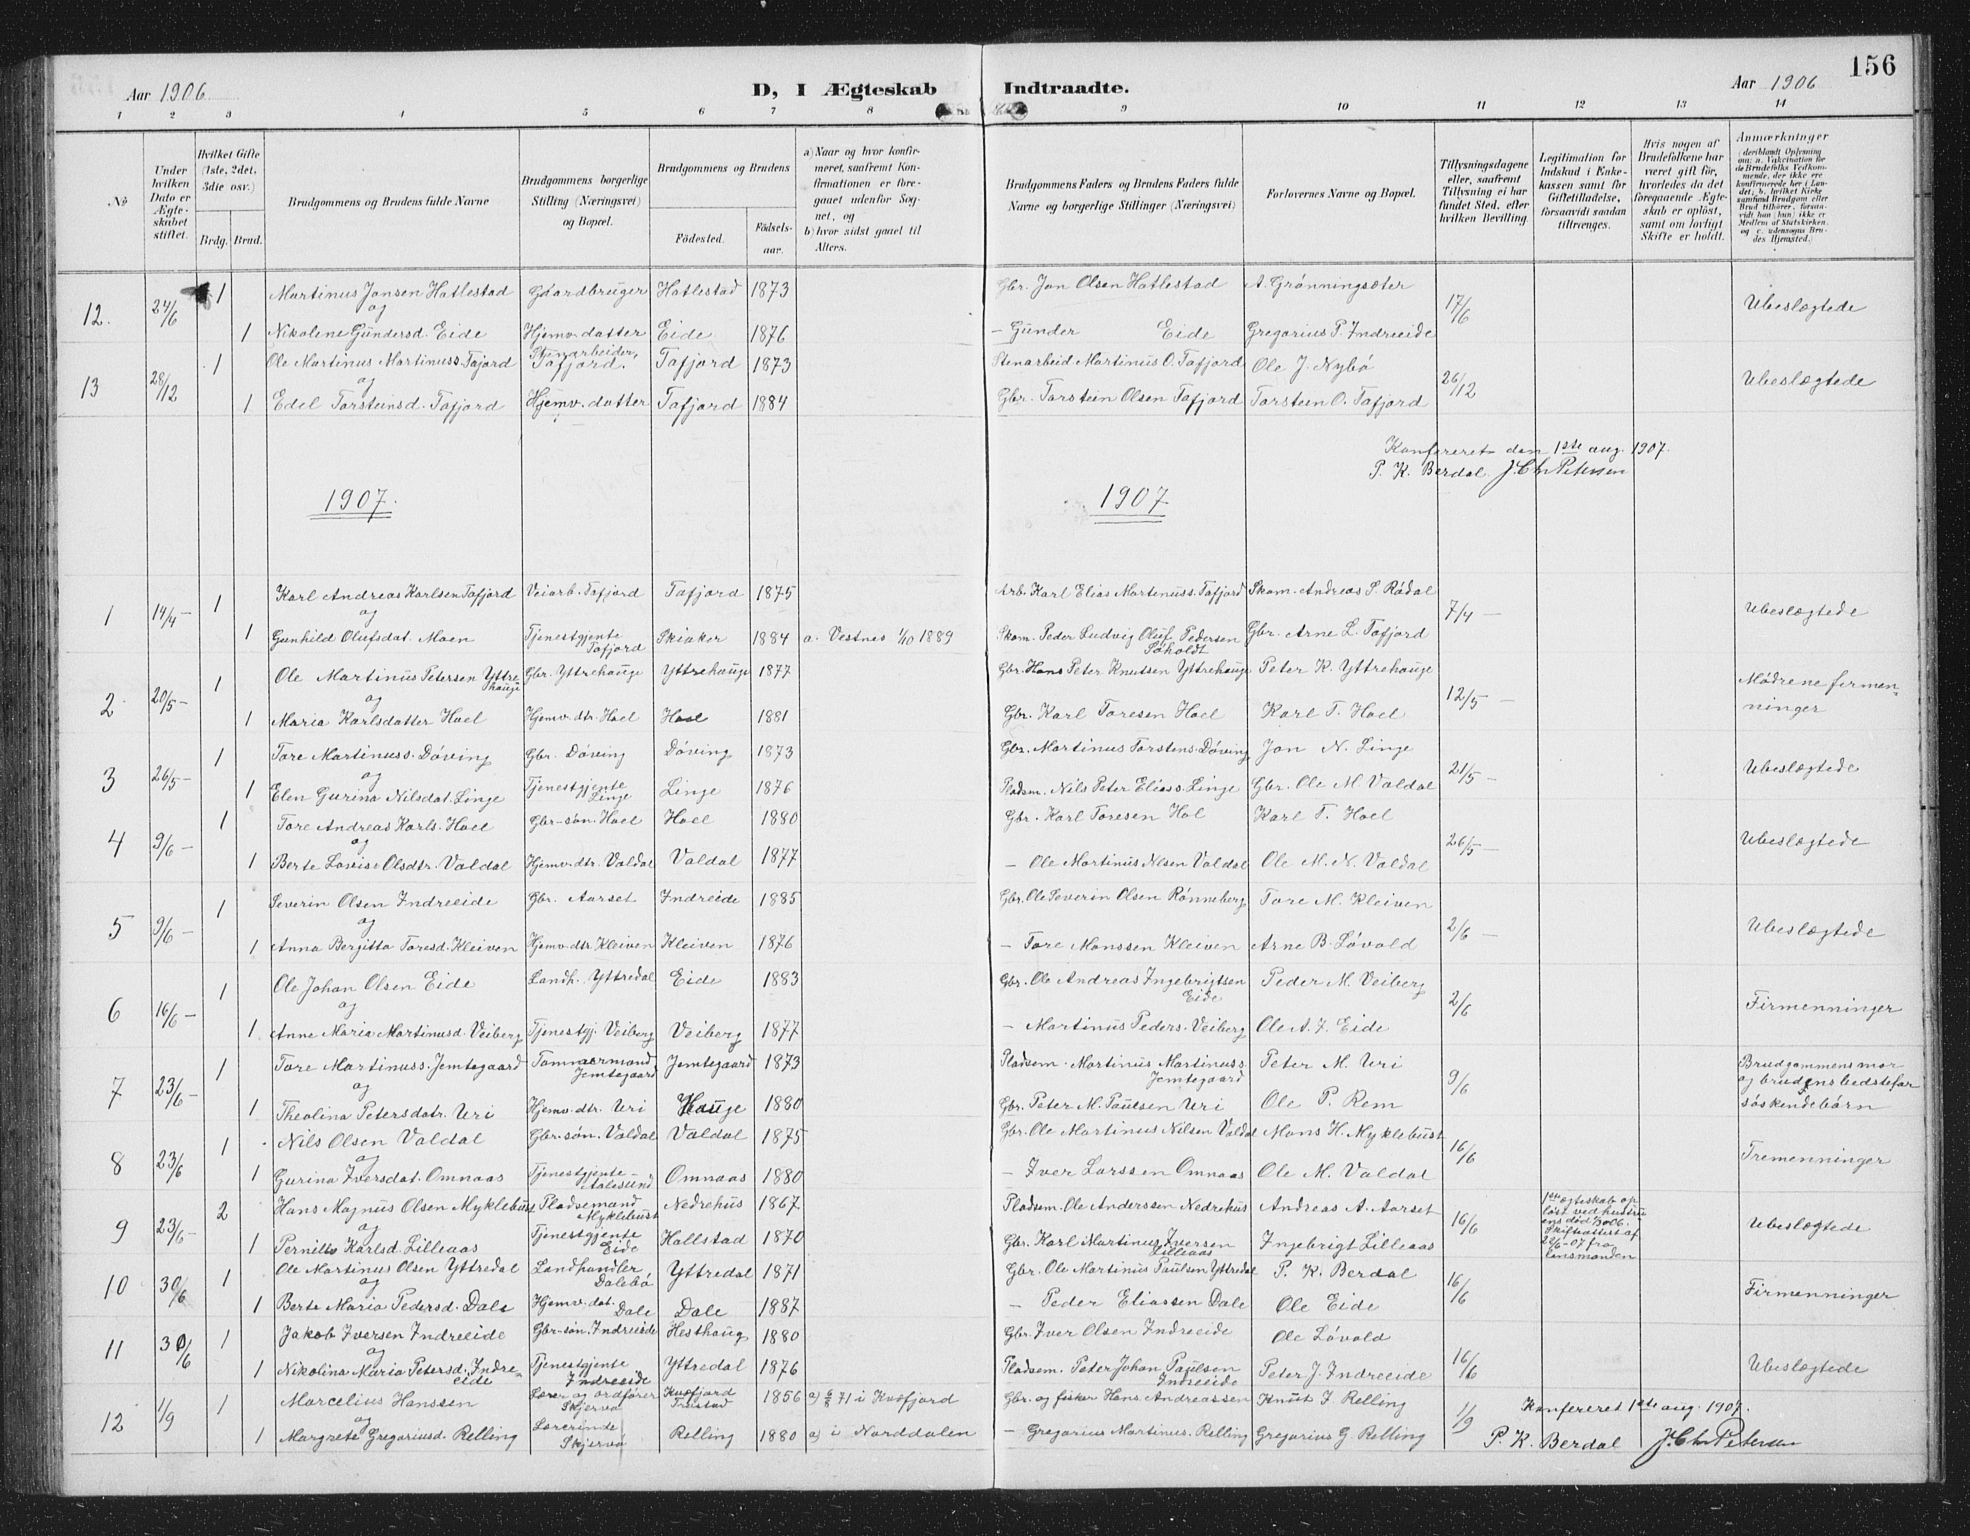 156
Aar 1906
D, I Ægteskab Indtraadte.
Aar 1906
1 2 3 4 5 6 7 8 9 10 11 12 13 14
No
Under hvilken Dato er Ægteskabet stiftet.
Hvilket Gifte (1ste, 2det, 3die osv.)
Brdg. Brud.
Brudgommens og Brudens fulde Navne
Brudgommens borgerlige Stilling (Næringsvei) og Bopæl.
Brudgommens og Brudens
Fødested. Fødselsaar.
a) Naar og hvor konfirmeret, saafremt Konfirmationen er foregaaet udenfor Sognet, og
b) hvor sidst gaaet til Alters.
Brudgommens Faders og Brudens Faders fulde Navne og borgerlige Stillinger (Næringsvei)
Forlovernes Navne og Bopæl.
Tillysningsdagene eller, saafremt Tillysning ei har fundet Sted, efter hvilken Bevilling.
Legitimation for Indskud i Enkekassen samt for Giftetilladelse, forsaavidt saadan tiltrænges.
Hvis nogen af Brudefolkene har været gift før, hvorledes da det foregaaende Ægteskab er opløst, samt om lovligt Skifte er holdt.
Anmærkninger (deriblandt Oplysning om: a. Vakcination for de Brudefolks Vedkommende, der ikke ere konfirmerede her i Landet; b. hvilket Kirkesamfund Brudgom eller Brud tilhører, forsaavidt han (hun) ikke er Medlem af Statskirken, og c. udensogns Brudes Hjemsted.)
12. 24/6 1 Martinus Jonsen Hatlestad Gaardbruger Hatlestad 1873 Gbr. Jon Olsen Hatlestad A. Grønningsæter 17/6 Ubeslægtede
og
1 Nikoline Gundersd. Eide Hjemv. datter Eide 1876 – Gunder Eide Gregorius P. Indreeide
13 28/12 1 Ole Martinus Martinuss. Tajord Stenarbeider, Tafjord. Tafjord 1873 Stenarbeid Martinus O. Tafjord Ole J. Nybø 26/12 Ubeslægtede
og
1 Edel Torsteinsd. Tafjord Hjemv. datter Tafjord 1884 Gbr. Torstein Olsen Tafjord Torsteen O. Tafjord
Konfereret den 1ste aug. 1907.
P. K. Berdal J. Chr Petersen
1907. 1907
1 14/4 – 1 Karl Andreas Karlsen Tafjord Veiarb. Tafjord Tafjord 1875 Arb. Karl Elias Martinuss. Tafjord Skom. Andreas S. Rødal 7/4 – Ubeslægtede
og
1 Gunhild Olufsdat. Moen Tjenestgjente Tafjord Skiaker 1884 a. Vestnes 1/10 1889 Skom. Peder Ludvig Oluf Pedersen Søholdt Gbr. Arne L. Tafjord
2 20/5 – 1 Ole Martinus Petersen Yttrehauge Gbr. Yttrehauge Yttrehauge 1877 Gbr. Hans Peter Knutsen Yttrehauge Peter K. Yttrehauge 12/5 – Mødrene firmenninger
og
1 Maria Karlsdatter Hoel Hjemv. dtr. Hoel Hoel 1881 Gbr. Karl Toresen Hoel Karl T. Hoel
3 26/5 – 1 Tore Martinuss. Døving Gbr. Døving Døving 1873 Gbr. Martinus Torstens. Døving Jon N. Linge 21/5 – Ubeslægtede
og
1 Elen Gurina Nilsdat. Linge Tjenestgjente Linge Linge 1876 Pladsm. Nils Peter Eliass. Linge Gbr. Ole M. Valdal
4 9/6 – 1 Tore Andreas Karls. Hoel Gbr-søn. Hoel Hoel 1880 Gbr. Karl Toresen Hol Karl T. Hoel 26/5 – Ubeslægtede
og
1 Berte Lovise Olsdtr. Valdal Hjemv. dtr. Valdal Valdal 1877 – Ole Martinus Nlsen Valdal Ole M. N. Valdal
5 9/6 – 1 Severin Olsen Indreeide Gbr. Aarset Indreeide 1885 Gbr. Ole Severin Olsen Rønneberg Tore M. Kleiven 2/6 – Ubeslægtede
og
1 Anna Bergitta Toresd. Kleiven Hjemv. dtr. Kleiven Kleiven 1876 – Tore Monssen Kleiven Arne B. Løvold
6 16/6 – 1 Ole Johan Olsen Eide Landh. Yttredal Eide 1883 Gbr. Ole Andreas Ingebrigtsen Eide Peder M. Veiberg 2/6 Firmenninger
og
1 Anne Maria Martinusd. Veiberg Tjenestgj. Veiberg Veiberg 1877 – Martinus Peders. Veiberg Ole A. I. Eide
7 23/6 – 1 Tore Martinuss. Jemtegaard Tømmermand Jemtegaard Jemtegaard 1873 Pladsem. Martinus Martinuss. Jemtegaard Peter M. Uri 9/6 Brudgommens mor og brudens bedstefar søskendebørn
og
1 Theolina Petersdatr. Uri Hjemv. dtr. Uri Hauge 1880 Gbr. Peter M. Paulsen Uri Ole P. Rem
8 23/6 1 Nils Olsen Valdal Gbr-søn. Valdal Valdal 1875 Gbr. Ole Martinus Nilsen Valdal Mons H. Myklebust 16/6 Tremenninger
og
1 Gurina Iversdat. Omnaas Tjenestgjente – Aalesund Omnaas 1880 – Iver Larssen Omnaas Ole M. Valdal
9 23/6 – 2 Hans Magnus Olsen Myklebust Pladsemand Myklebust Nedrehus 1867 Pladsm. Ole Anderssen Nedrehus Andreas A. Aarset 16/6 1ste ægteskab opløst ved hustruens død 3006. Skifteattest af 20/6-07 fra lensmanden Ubeslægtede
og
1 Pernille Karlsd. Lilleaas Tjenestgjente Eide Hallstad 1870 Gbr. Karl Martinus Iversen Lilleaas Ingebrigt Lilleaas
10 30/6 1 Ole Martinus Olsen Yttredal Landhandler Dalebø Yttredal 1871 Gbr. Ole Martinus Paulsen Yttredal P. K. Berdal 16/6 Firmenninger
og
1 Berte Maria Pedersd. Dale Hjemv. dat. Dale Dale 1887 – Peder Eliassen Dale Ole Eide
11 30/6 1 Jakob Iversen Indreeide Gbr-søn. Indreeide Hesthaug 1880 Gbr. Iver Olsen Indreeide Ole Løvold 16/6 Ubeslægtede
og
1 Nikolina Maria Petersd. Indreeide Tjenestgjente Indreeide Yttredal 1876 Pladsem. Peter Johan Paulsen Indreeide Peter J. Indreeide
12 1/9 1 Marcelius Hanssen Lærer og ordfører Skjervø Kvæfjord 1856 a) 71 i Kvæfjord Gbr. og fisker Hans Andreassen Knut J. Relling 1/9
og
1 Margrete Gregoriusd. Relling Lærerinde Skjervø Relling 1880 a) i Norddalen – Gregorius Martinus. Relling Gregorius G. Relling
Konfereret 1ste aug. 1907.
P. K. Berdal J. Chr Petersen